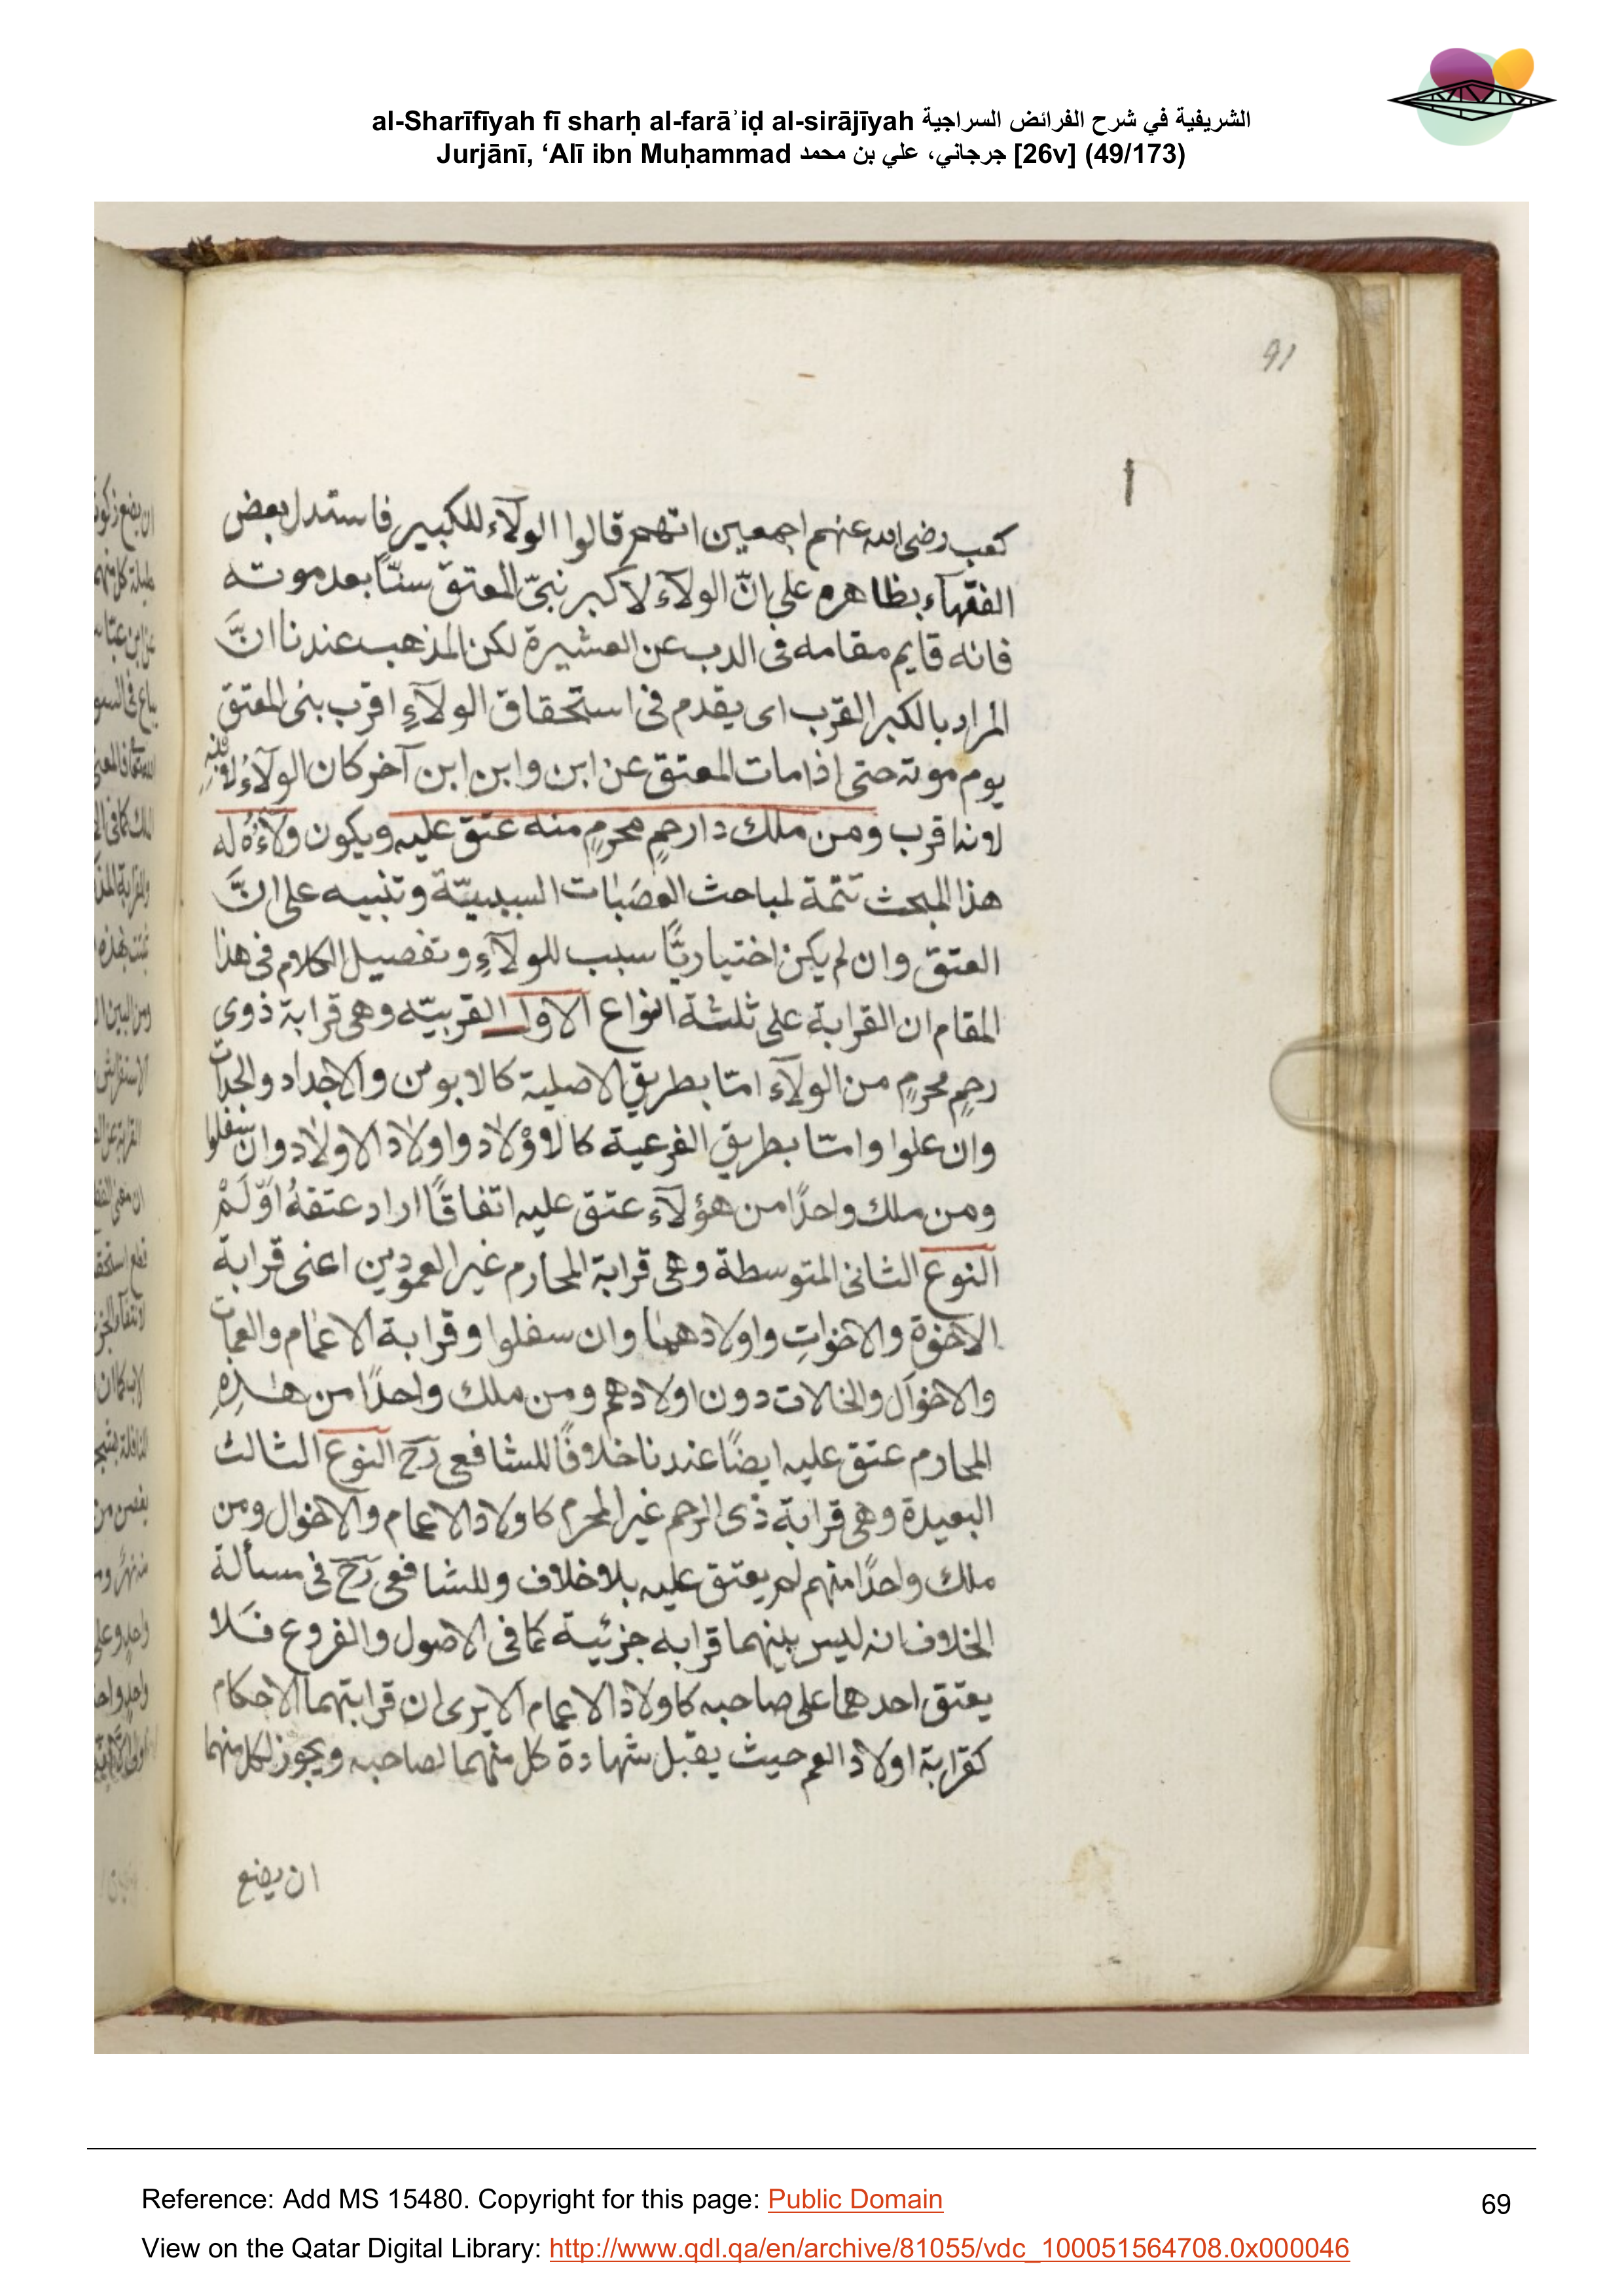 al-Sharīfīyah fī sharḥ al-farāʾiḍ al-sirājīyah الشريفية في شرح الفرائض السراجية
Jurjānī, ‘Alī ibn Muḥammad جرجاني، علي بن محمد [26v] (49/173)
91
كعب رضى الله عنهم اجمعين انهم قالوا الولآء للكبير فاستدل بعض
الفقهآء بظاهره على انّ الولآء لاكبر نبىّ المعتق سنّاً بعد موته
فانه قايم مقامه فى الدب عن العشيرة لكن المذهب عندنا انَّ
المراد بالكبر القرب اى يقدم فى استحقاق الولآءِ اقرب بنى المعتق
يوم موته حتى اذا مات المعتق عن ابن وابن ابن آخر كان الولآءُ لابنهِ
لانه اقرب ومن ملك دا رحمٍ محرمٍ منه عتق عليه ويكون ولآءُهُ له
هذا المبحث تتمة لمباحث العصَبات السببيّة وتنبيه على انَّ
العتق وان لم يكن اختياريًّا سبب للولآءِ وتفصيل الكلام فى هذا
المقام ان القرابة على ثلثة انواع الاول القريبيّه وهى قرابة ذوى
رحمٍ محرمٍ من الولآء امّا بطريق الاصلية كالابوين والاجداد والجدات
وان علوا وامّا بطريق الفرعية كالاوْلاد واولاد الاولاد وان سفلوا
ومن ملك واحدًا من هؤلآء عتق عليه اتفاقًا اراد عتقهُ اوّ لَمْ
النوع الثانى المتوسطة وهى قرابة المحارم غير العمودين اعنى قرابة
الاخوة والاخواتِ واولادهما وان سفلوا وقرابة الاعمام والعمات
والاخوال والخالات دون اولادهم ومن ملك واحدًا من هٰذِهِ
المحارم عتق عليه ايضًا عندنا خلافًا للشافعى رح النوع الثالث
البعيدة وهى قرابة ذى الرحم غير المحرم كاولاد الاعمام والاخوال ومن
ملك واحدًا منهم لم يعتق عليه بلا خلاف وللشافعى رح فى مسألة
الخلاف انه ليس بينهما قرابه جزئية كما فى الاصول والفروع فلا
يعتق احدهما على صاحبه كاولاد الاعمام الا يرى ان قرابتهما الاحكام
كقرابة اولاد العم حيث يقبل شهادة كل منهما لصاحبه ويجوز لكل منهما
ان يضع
Reference: Add MS 15480. Copyright for this page: Public Domain
69
View on the Qatar Digital Library: http://www.qdl.qa/en/archive/81055/vdc_100051564708.0x000046